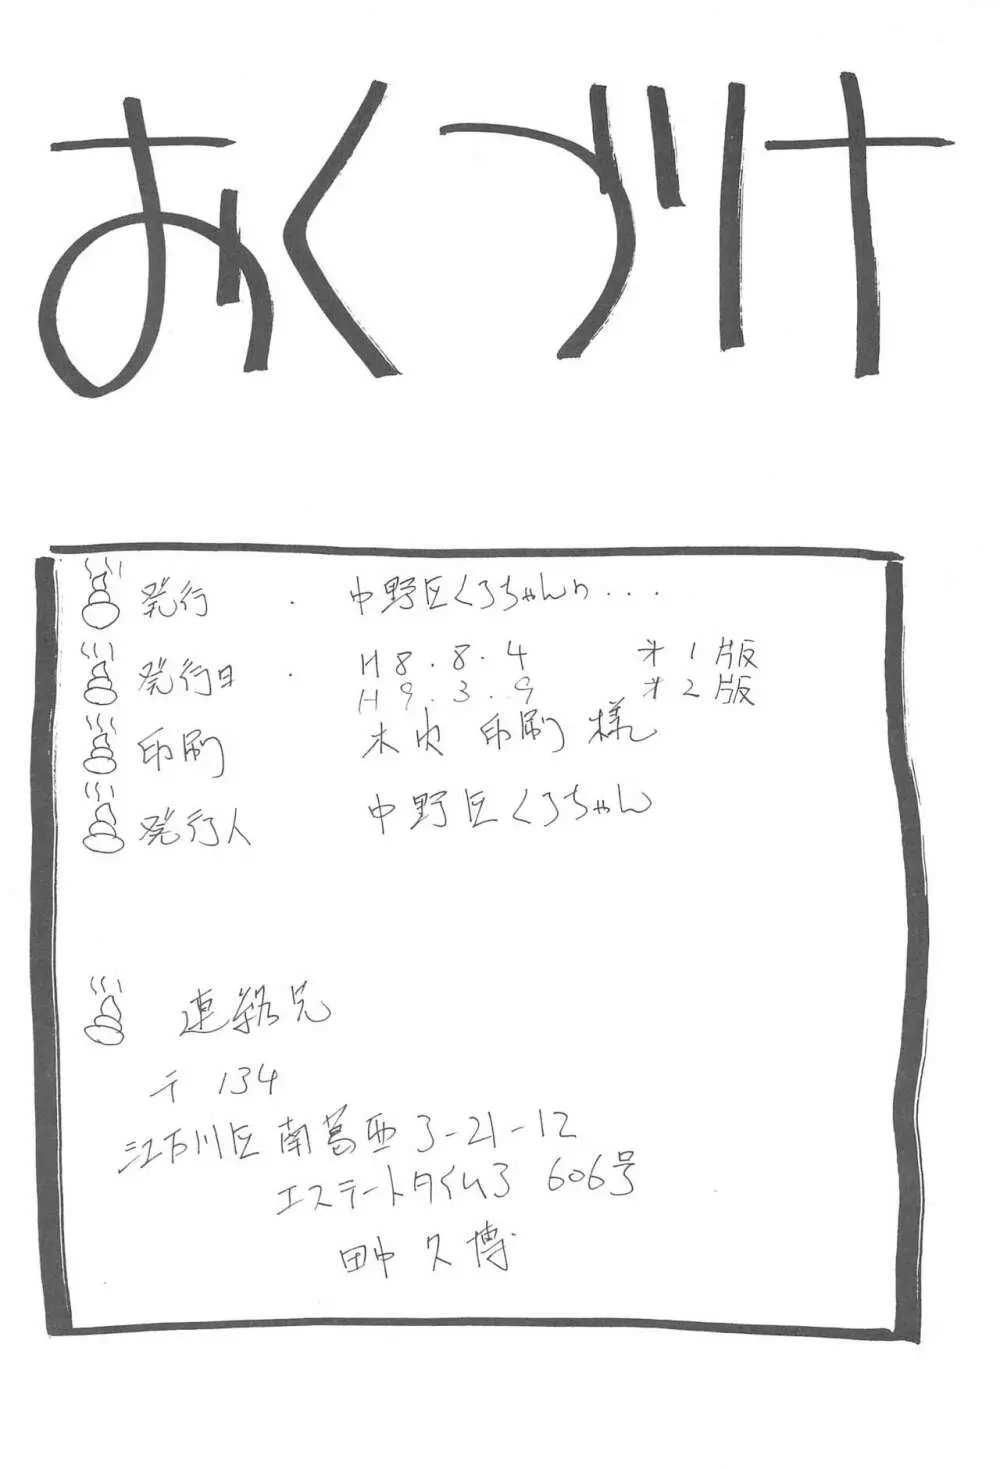 おくづけ
発行 . 中野区くろちゃんの...
発行日 . H8.8.4 オ1版
H9.3.9 オ2版
印刷 木内印刷様
発行人 中野区くろちゃん
連絡先
〒134
江戸川区南葛西3-21-12
エステートタイム3 606号
田中久博